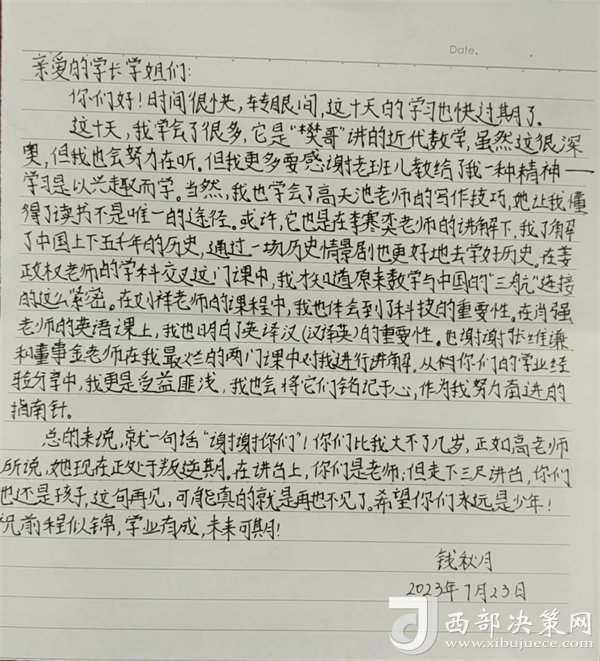 Date.
亲爱的学长学姐们:
你们好!时间很快,转眼间,这十天的学习也快过期了。
这十天,我学会了很多,它是“樊哥”讲的近代数学,虽然这很深
奥,但我也会努力在听。但我更多要感谢老班儿教给了我一种精神——
学习是以兴趣而学。当然,我也学会了高天池老师的写作技巧,她让我懂
得了读书不是唯一的途径。或许,它也是在李寒奕老师的讲解下,我了解
了中国上下五千年的历史,通过一场历史情景剧也更好地去学好历史。在姜
政权老师的学科交叉这门课中,我才知道原来数学与中国的“三航”连接
的这么紧密。在刘样老师的课程中,我也体会到了科技的重要性。在肖强
老师的英语课上,我也明白了英译汉(汉译英)的重要性。也谢谢张维谦
和董事金老师在我最烂的两门课中对我进行讲解。从你们的学业经
验分享中,我更是受益匪浅,我也会将它们铭记于心,作为我努力奋进的
指南针。
总的来说,就一句话“谢谢你们”!你们比我大不了几岁,正如高老师
所说,她现在正处于叛逆期。在讲台上,你们是老师;但走下三尺讲台,你们
也还是孩子,这句再见,可能真的就是再也不见了。希望你们永远是少年!
祝前程似锦,学业有成,未来可期!
钱秋月
2023年7月23日
西部决策网
www.xibujuece.com